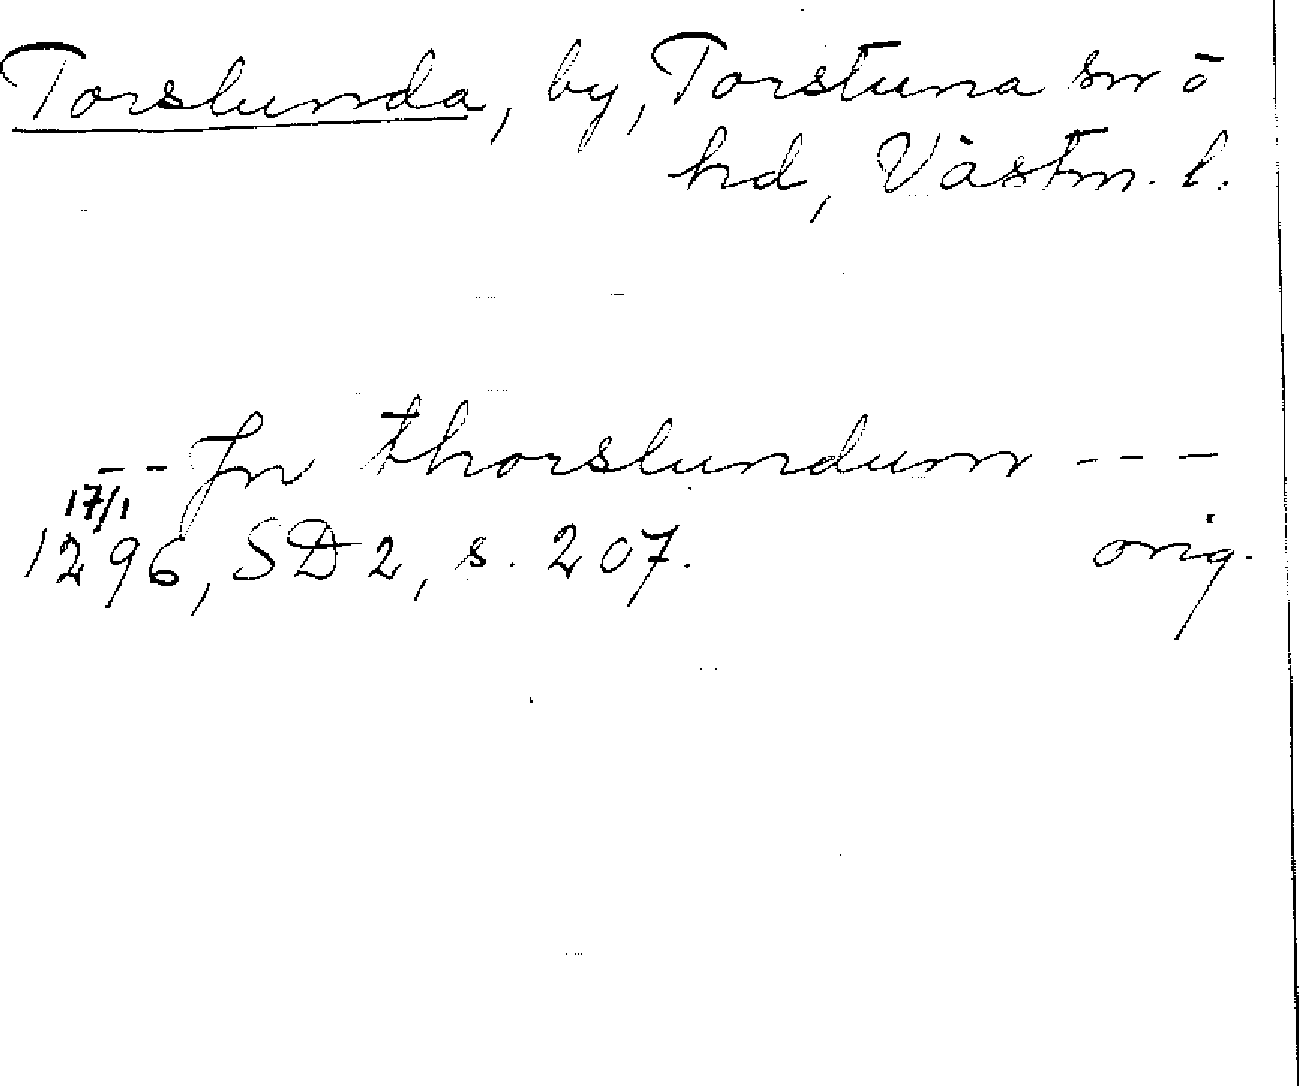 Torslunda, by, Torstuna sn o
hd, Västm. l.
-- Jn thorslundum ---
17/1
1296, SD 2, s. 207. orig.